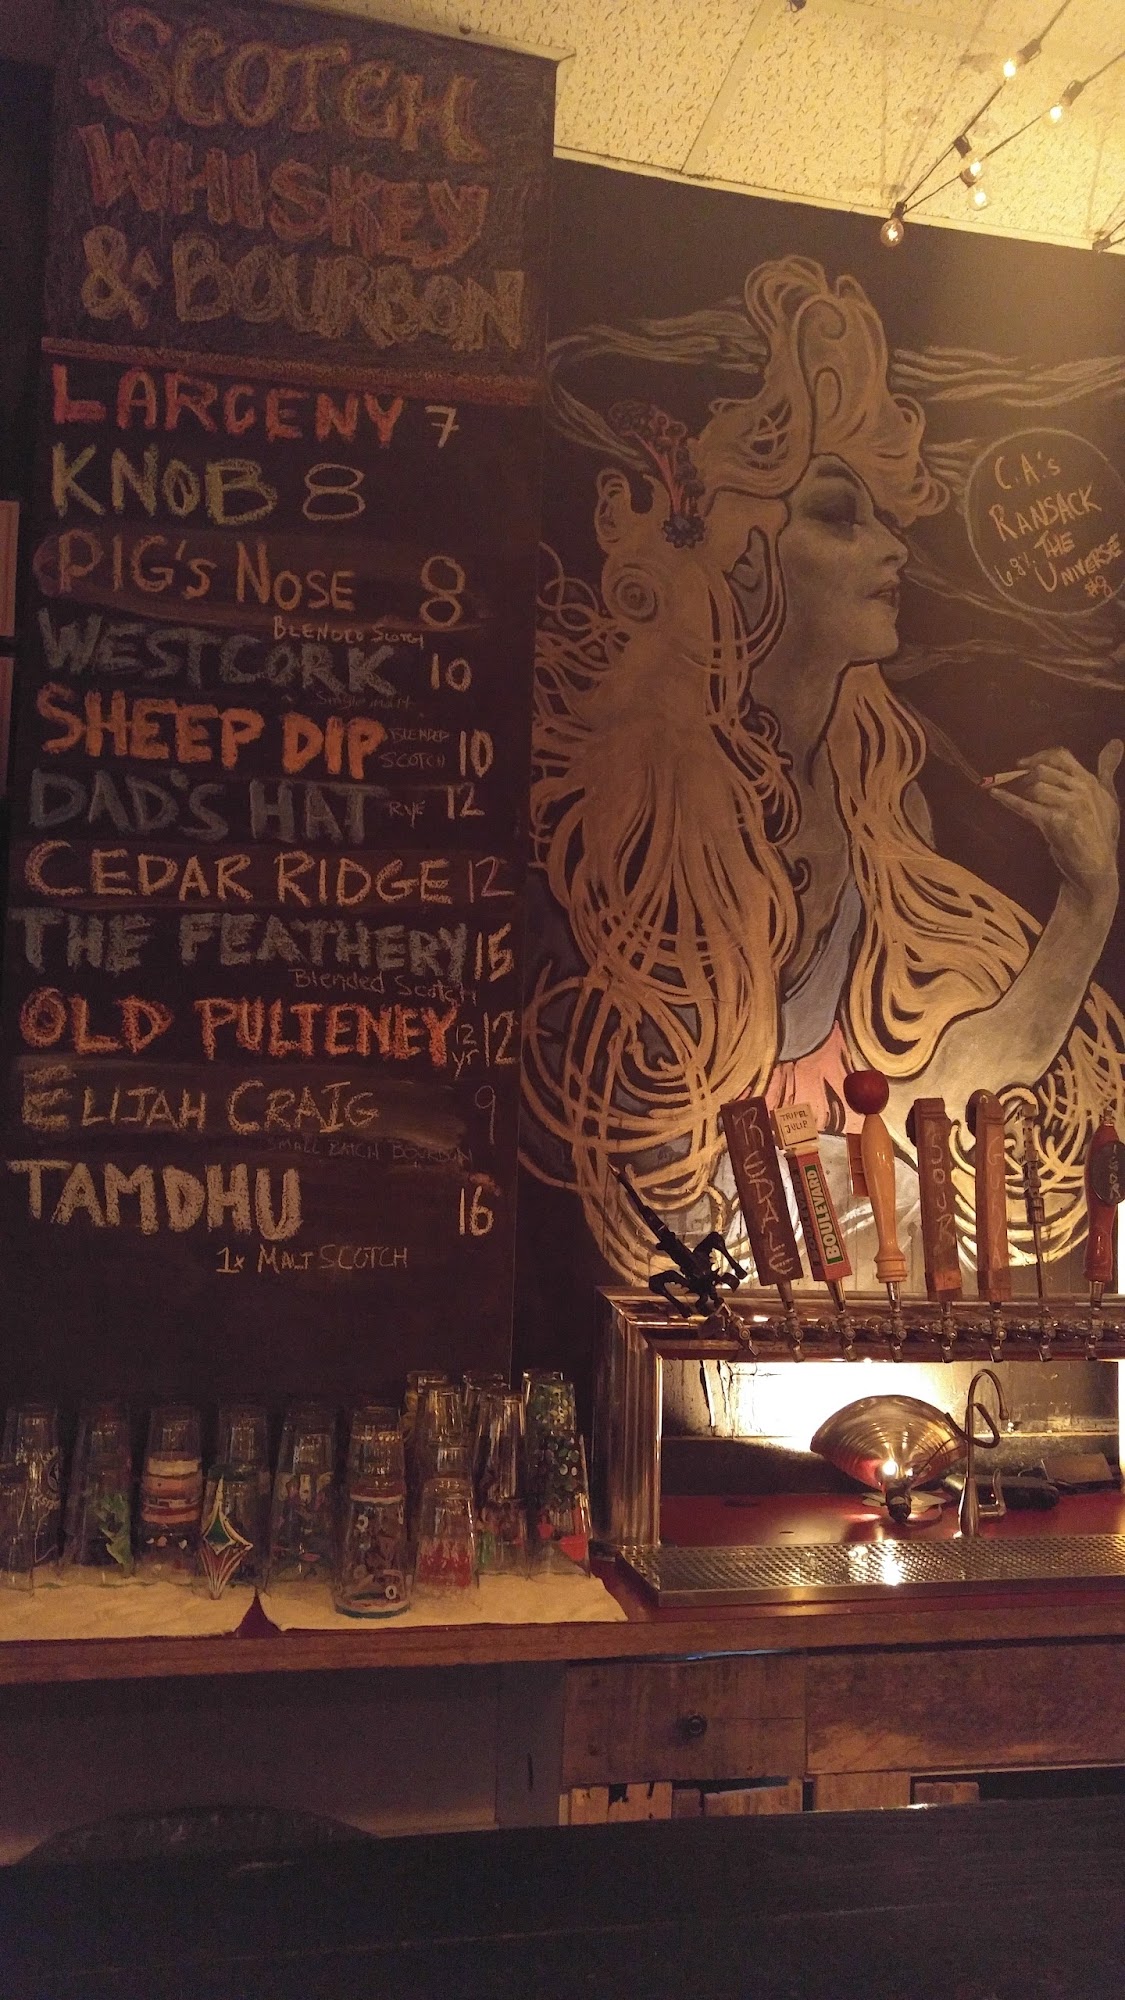 SCOTCH
WHISKEY
& BOURBON
LARCENY 7
KNOB 8
PIG'S NOSE 8
BLENDED SCOTCH
WESTCORK 10
Single malt
SHEEP DIP BLENDED SCOTCH 10
DAD'S HAT RYE 12
CEDAR RIDGE 12
THE FEATHERY 15
Blended Scotch
OLD PULTENEY 12 yr 12
ELIJAH CRAIG 9
SMALL BATCH BOURBON
TAMDHU 16
1x MALT SCOTCH
C.A.'s
RANSACK
THE
6.8% UNIVERSE
#8
RED ALE
TRIPEL
JULEP
BOULEVARD
SOUR